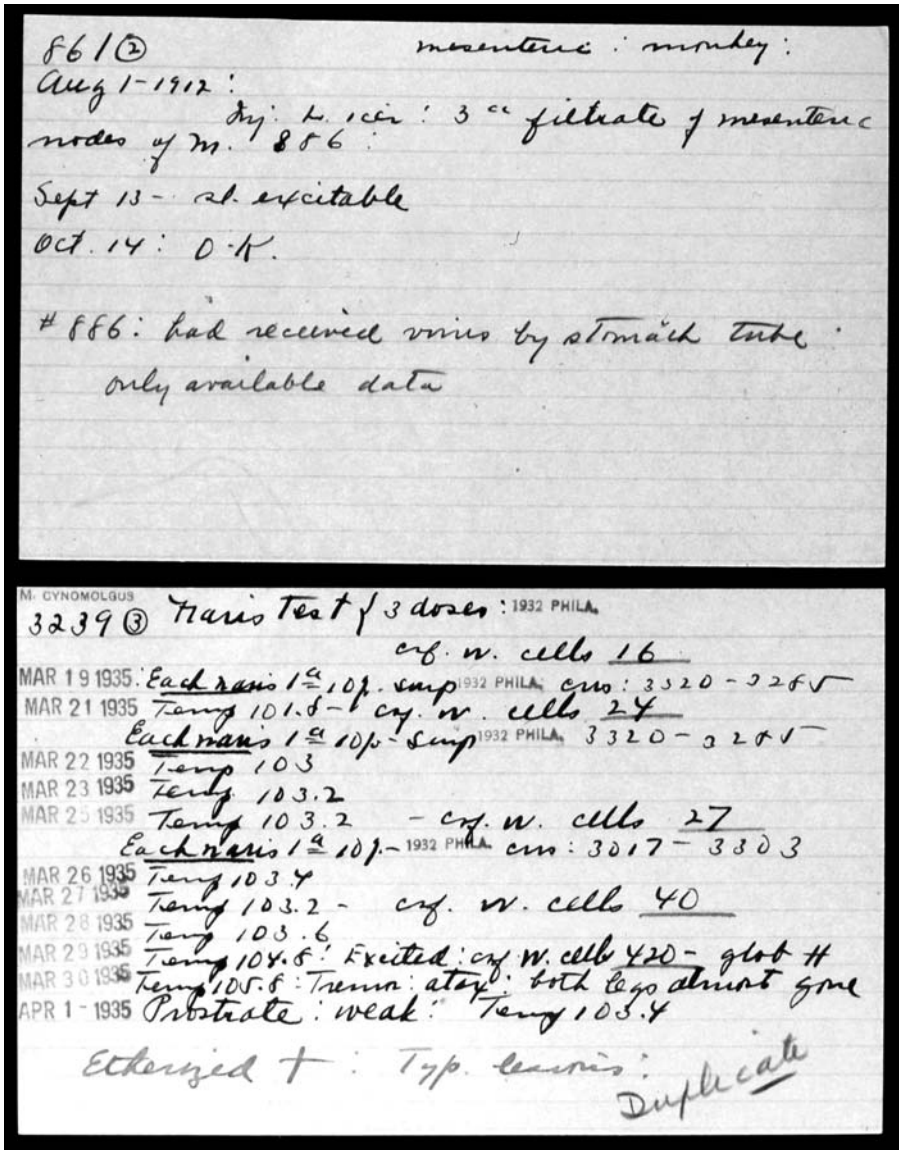 861 ② mesenteric : monkey :
Aug 1-1912 :
Inj. : 3 cc filtrate of mesenteric
nodes of m. 886 :
Sept 13 - sl. excitable
Oct. 14 : O.K.
# 886 : had received virus by stomach tube :
only available data
M. CYNOMOLGUS
3239 ③ Naris Test : 3 doses : 1932 PHILA.
csf. w. cells 16
MAR 19 1935 : Each naris 1 cc 10 p. susp 1932 PHILA. cns : 3320 - 3285
MAR 21 1935 Temp 101.8 - csf. w. cells 24
Each naris 1 cc 10 p - susp 1932 PHILA. 3320 - 3285
MAR 22 1935 Temp 103
MAR 23 1935 Temp 103.2
MAR 25 1935 Temp 103.2 - csf. w. cells 27
Each naris 1 cc 10 p. - 1932 PHILA. cns : 3017 - 3303
MAR 26 1935 Temp 103.4
MAR 27 1935 Temp 103.2 - csf. w. cells 40
MAR 28 1935 Temp 103.6
MAR 29 1935 Temp 104.8 : Excited : csf w. cells 420 - glob #
MAR 30 1935 Temp 105.8 : Tremor : atax : both legs almost gone
APR 1 - 1935 Prostrate : weak : Temp 103.4
Etherized † : Typ. lesions :
Duplicate